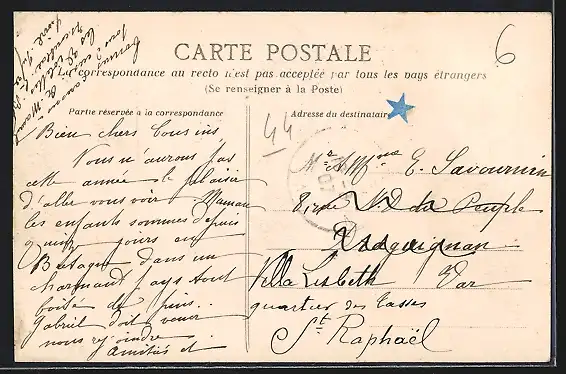 6
CARTE POSTALE
La correspondance au recto n'est pas acceptée par tous les pays étrangers
(Se renseigner à la Poste)
Partie réservée à la correspondance
Bien chers Cousins
Nous n'aurons pas
cette année le plaisir
d'aller vous voir Maman
les enfants sommes depuis
quinze jours en
Bretagne dans un
charmant pays tout
boisé de pins.
Gabriel doit venir
nous rejoindre.
Amitiés et
Adresse du destinataire
44
Mr & Mme E. Savournin
N D du Peuple
Draguignan
Villa Lisbeth Var
quartier des Tasses
St Raphaël